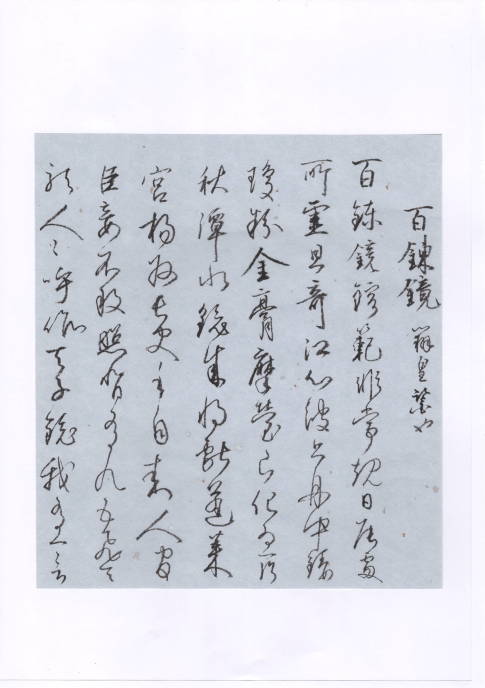 百鍊鏡 皇
百鍊鏡鎔範非常規日辰處
所靈且奇江心波上舟中鑄
瓊粉金膏摩瑩已化為一片
秋潭水鏡成將獻蓬萊
宮揚長吏手自人間
臣妾不敢照背有九五飛天
龍人々呼為天子鏡我有一言